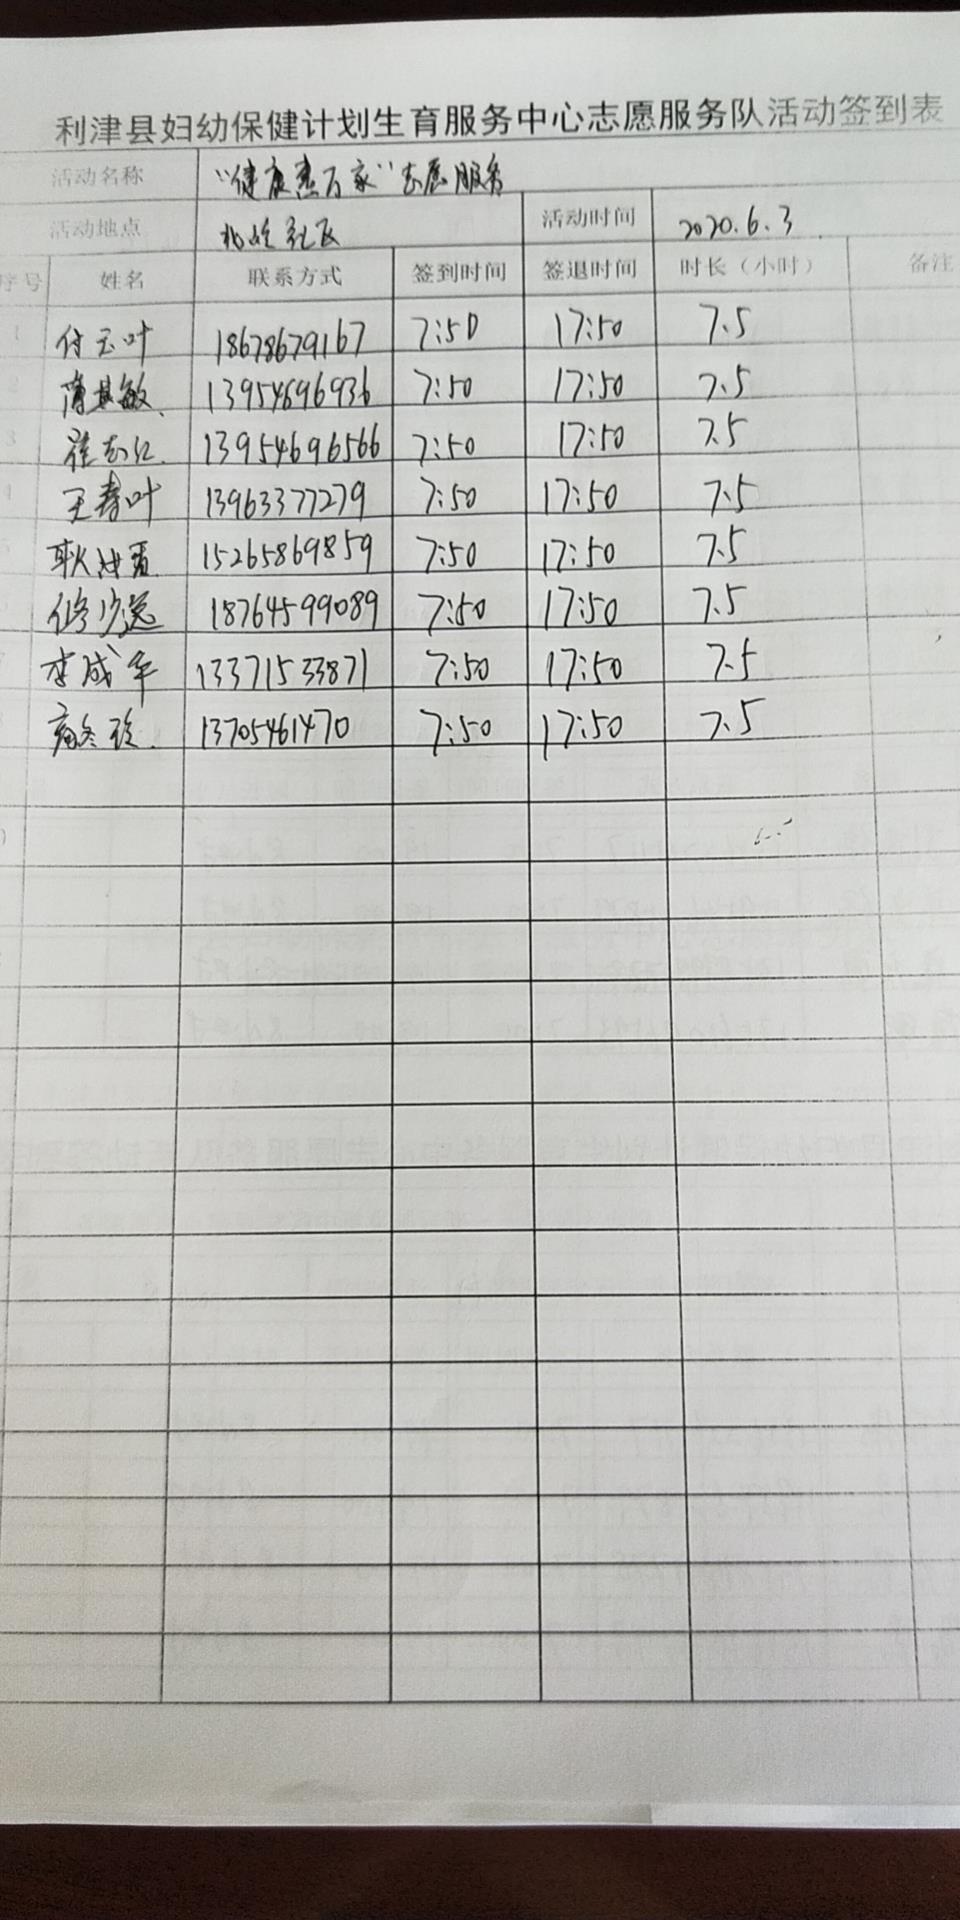 利津县妇幼保健计划生育服务中心志愿服务队活动签到表
活动名称 "健康惠万家"志愿服务
活动地点 社区 活动时间 2020.6.3
序号 姓名 联系方式 签到时间 签退时间 时长（小时） 备注
1 付玉叶 18678679167 7:50 17:50 7.5
2 薄其敏 13954696936 7:50 17:50 7.5
3 崔志红 13954696566 7:50 17:50 7.5
4 王春叶 13963377279 7:50 17:50 7.5
5 15265869859 7:50 17:50 7.5
18764599089 7:50 17:50 7.5
李成华 13371533871 7:50 17:50 7.5
13705461470 7:50 17:50 7.5